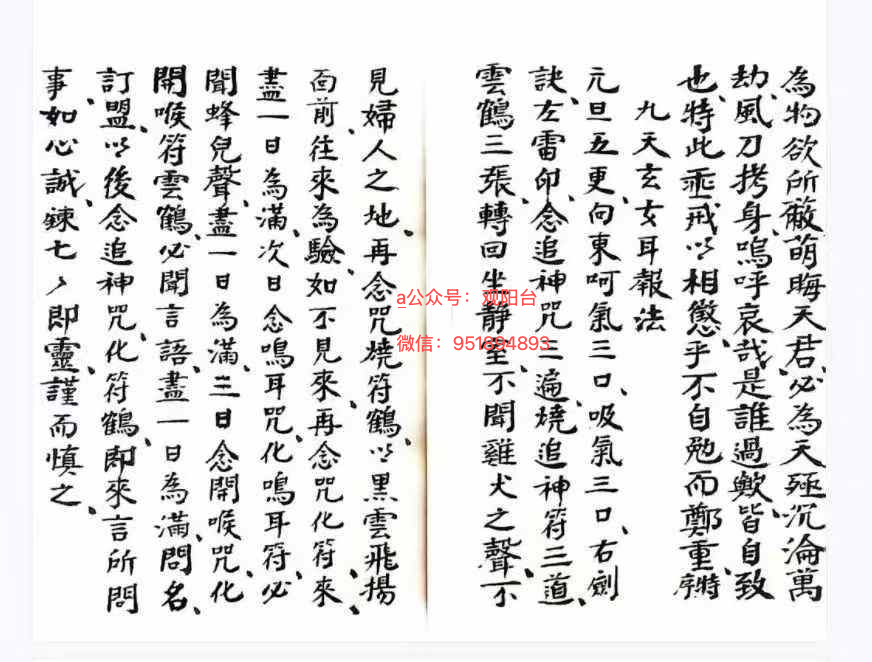 為物欲所蔽萌晦天君、必為天殛沉淪萬
劫、風刀拷身、嗚呼哀哉、是誰過歟、皆自致
也、特此垂戒以相懲、乎不自勉而鄭重
九天玄女耳報法
元旦五更、向東呵氣三口、吸氣三口、右劍
訣、左雷印、念追神咒三遍、燒追神符三道、
雲鶴三張、轉回坐静室、不聞雞犬之聲、不
見婦人之地、再念咒燒符鶴、以黑雲飛揚
面前、往來為驗、如不見來、再念咒化符來、
盡一日為滿、次日念鳴耳咒、化鳴耳符、必
聞蜂兒聲、盡一日為滿、三日念開喉咒、化
開喉符雲鶴、必聞言語、盡一日為滿、問名、
訂盟、以後念追神咒、化符鶴、即來言所問
事、如心誠、鍊七〻即靈、謹而慎之、
a公众号：观阳台
微信：951894893